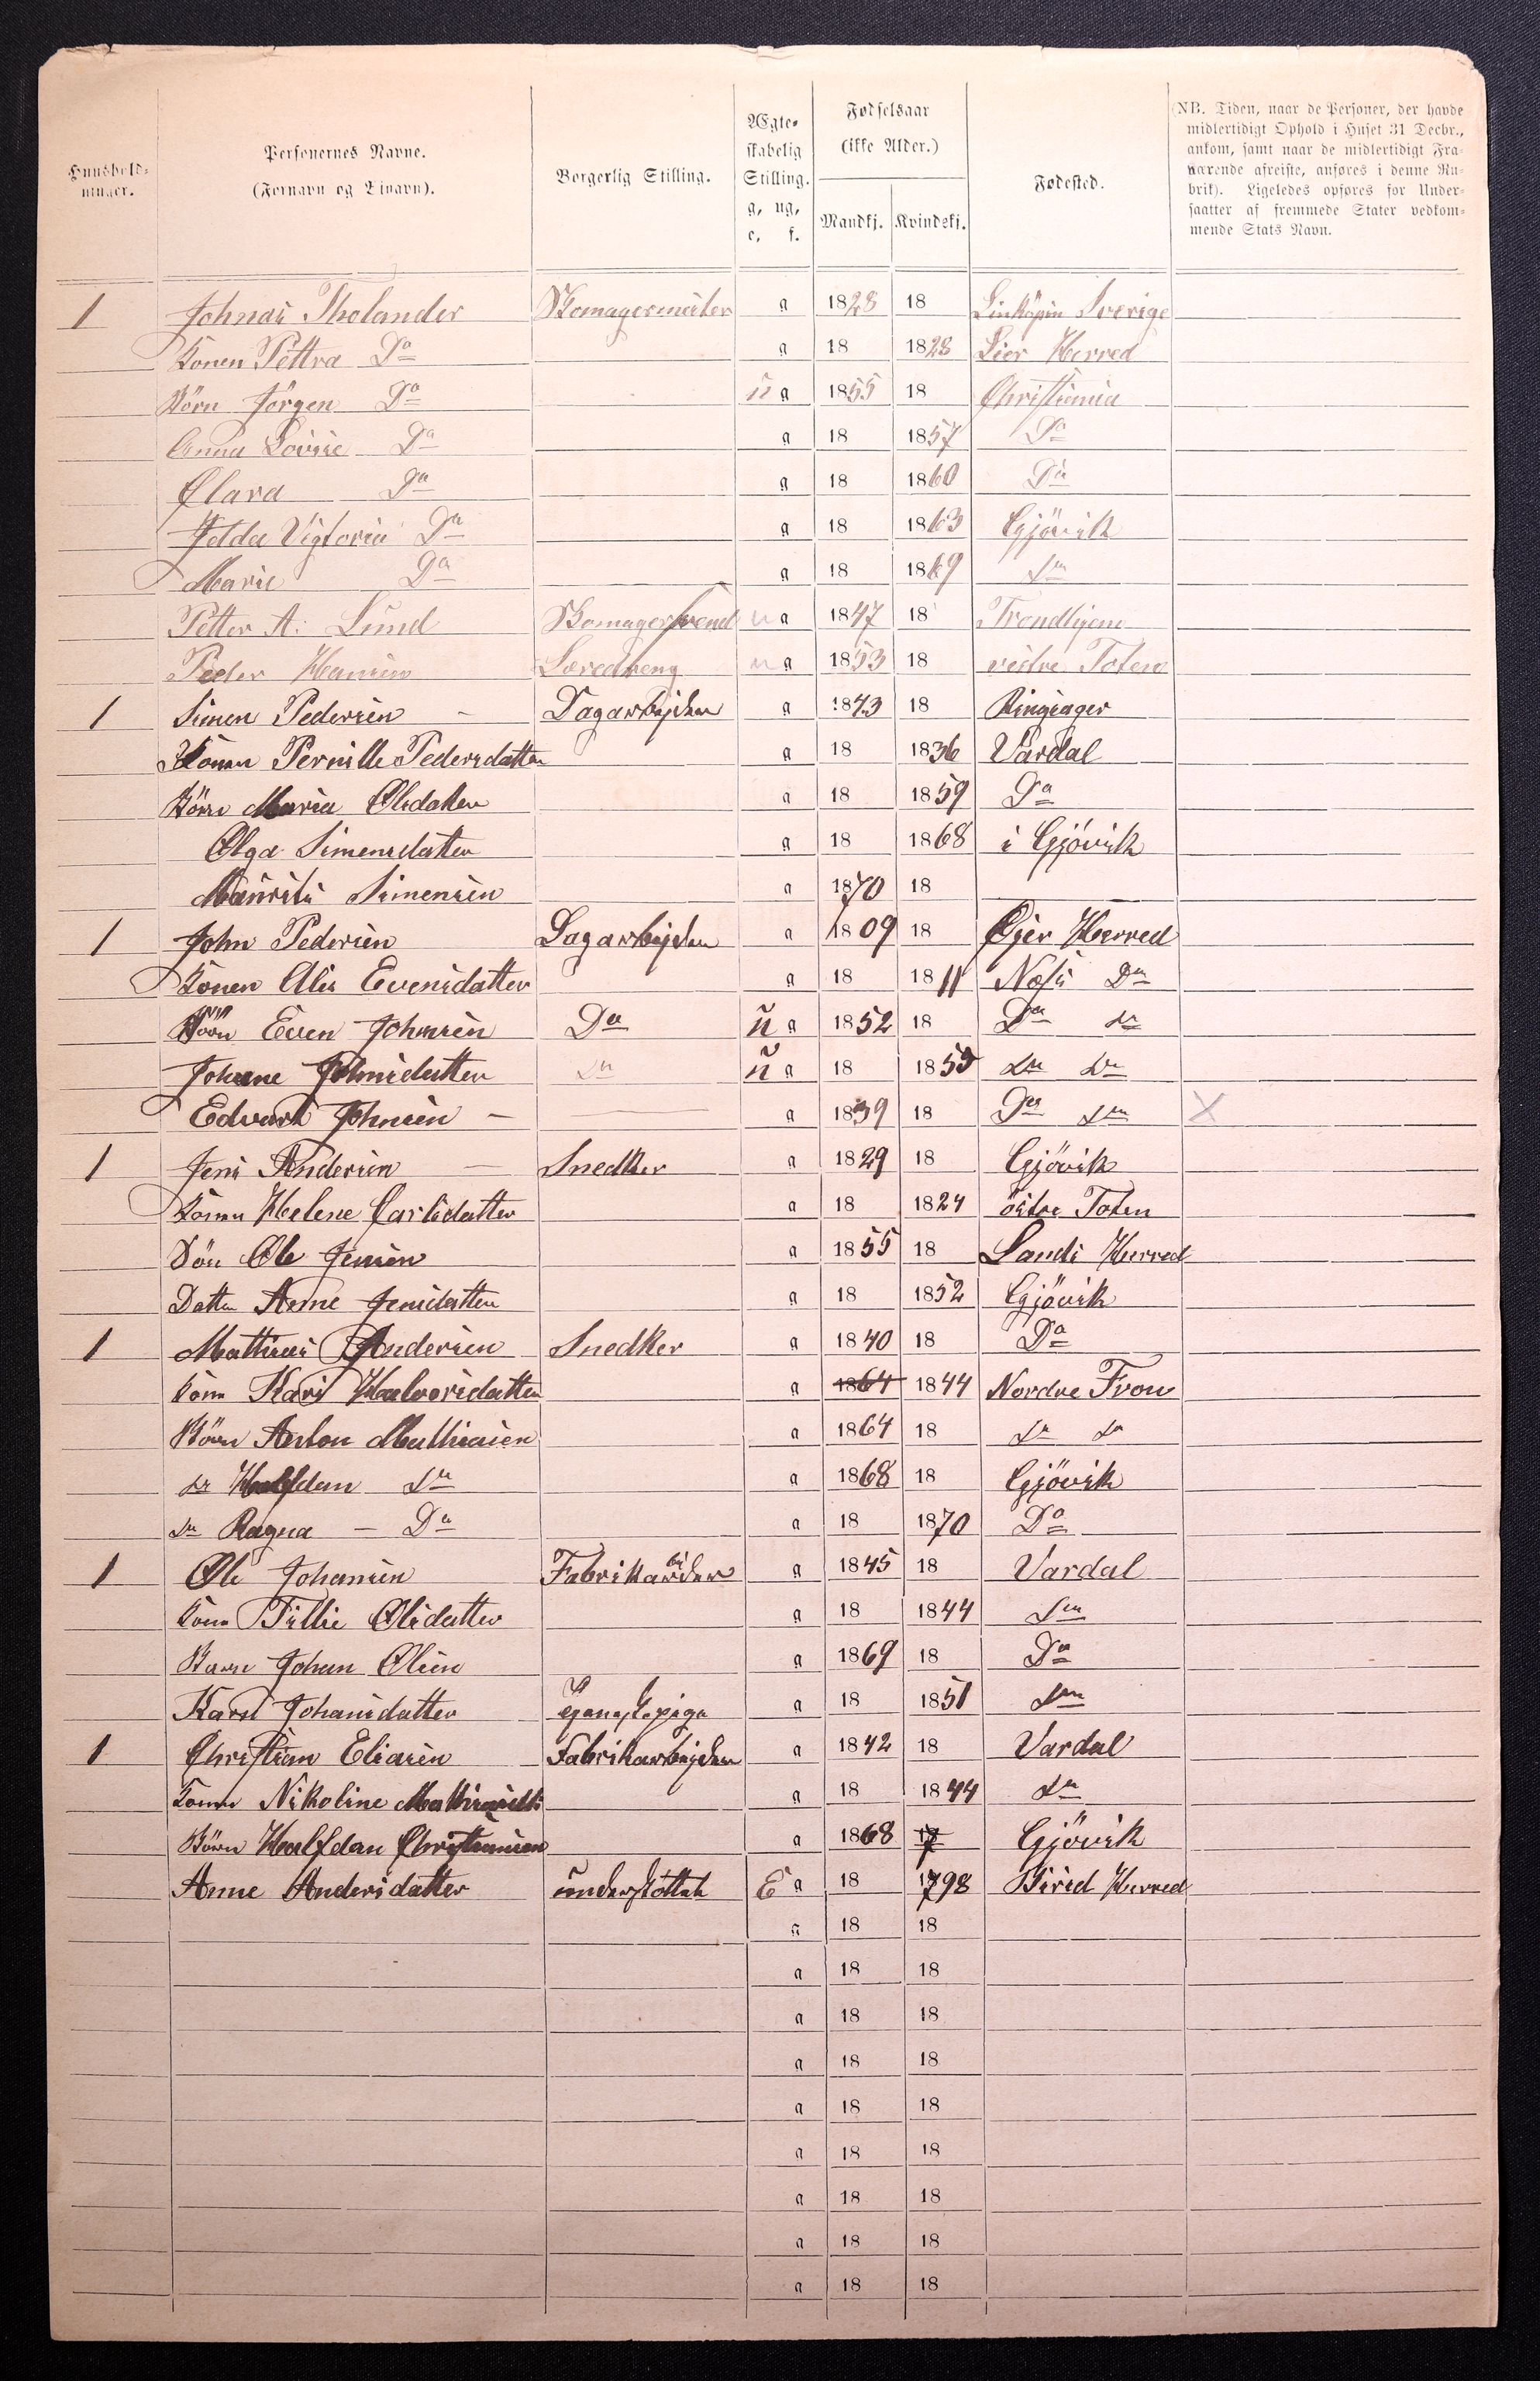 Huushold-
ninger.
Personernes Navne.
(Fornavn og Tilnavn).
Borgerlig Stilling.
Ægte-
skabelig
Stilling.
g, ug,
e, f.
Fødselsaar
(ikke Alder.)
Mandkj. Kvindekj.
Fødested.
(NB. Tiden, naar de Personer, der havde
midlertidigt Ophold i Huset 31 Decbr.,
ankom, samt naar de midlertidigt Fra-
værende afreiste, anføres i denne Ru-
brik). Ligeledes opføres for Under-
saatter af fremmede Stater vedkom-
mende Stats Navn.
1 Johnas Tholander Skomagermester g 1828 18 Linköpin Sverige
Konen Pettra Do g 18 1828 Lier Herred
Börn Jörgen Do u g 1855 18 Christiania
Anna Lovise Do g 18 1857 Do
Clara Do g 18 1860 Do
Helda Vigtoria Do g 18 1863 Gjövik
Marie Do g 18 1869 Do
Petter A. Lund Skomagersvend u g 1847 18 Trondhjem
Peder Hansen Læredreng u g 1853 18 vestre Toten
1 Simen Pedersen Dagarbejder g 1843 18 Ringsager
Konen Pernille Pedersdatter g 18 1836 Vardal
Börn Maria Olsdatter g 18 1859 Do
Olga Simensdatter g 18 1868 i Gjövik
Mauritz Simensen g 1870 18
1 John Pedersen Dagarbejder g 1809 18 Øjer Herred
Konen Alis Evensdatter g 18 1811 Næss Do
Börn Even Johnsen Do u g 1852 18 Do Do
Johane Johnsdatter Do u g 18 1855 Do Do
Edvart Johnsen g 1859 18 Do Do X
1 Jens Andersen Snedker g 1829 18 Gjövik
Konen Helene Carlsdatter g 18 1824 östre Toten
Sön Ole Jensen g 1855 18 Lands Herred
Datter Anne Jensdatter g 18 1852 Gjövik
1 Mathias Andersen Snedker g 1840 18 Do
Kone Kari Halvorsdatter g 1864 1844 Nordre Fron
Börn Anton Mathiasen g 1864 18 Do Do
Do Halfdan Do g 1868 18 Gjövik
Do Ragna Do g 18 1870 Do
1 Ole Johansen Fabrikarbider g 1845 18 Vardal
Kone Tillie Olsdatter g 18 1844 Do
Barn Johan Olsen g 1869 18 Do
Kari Johansdatter Tjenestepige g 18 1851 Do
1 Christian Eliasen Fabrikarbejder g 1842 18 Vardal
Konen Nikoline Mathiasdt g 18 1844 Do
Börn Halfdan Christiansen g 1868 17 Gjövik
Anne Andersdatter understöttet E g 18 1798 Birid Herred
g 18 18
g 18 18
g 18 18
g 18 18
g 18 18
g 18 18
g 18 18
g 18 18
g 18 18